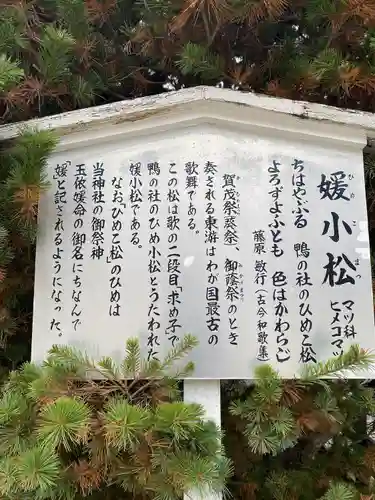 媛小松 マツ科
ヒメコマツ
ちはやぶる 鴨の社のひめ小松
よろずよふとも 色はかわらじ
藤原敏行(古今和歌集)
賀茂祭(葵祭) 御蔭祭のとき
奏される東游はわが国最古の
歌舞である。
この松は歌の二段目「求め子」で
鴨の社のひめ小松とうたわれた
媛小松である。
なお「ひめこ松」のひめは
当神社の御祭神
玉依媛命の御名にちなんで
〝媛〟と記されるようになった。